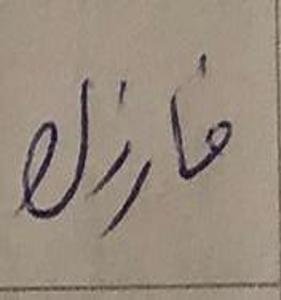 فارزل